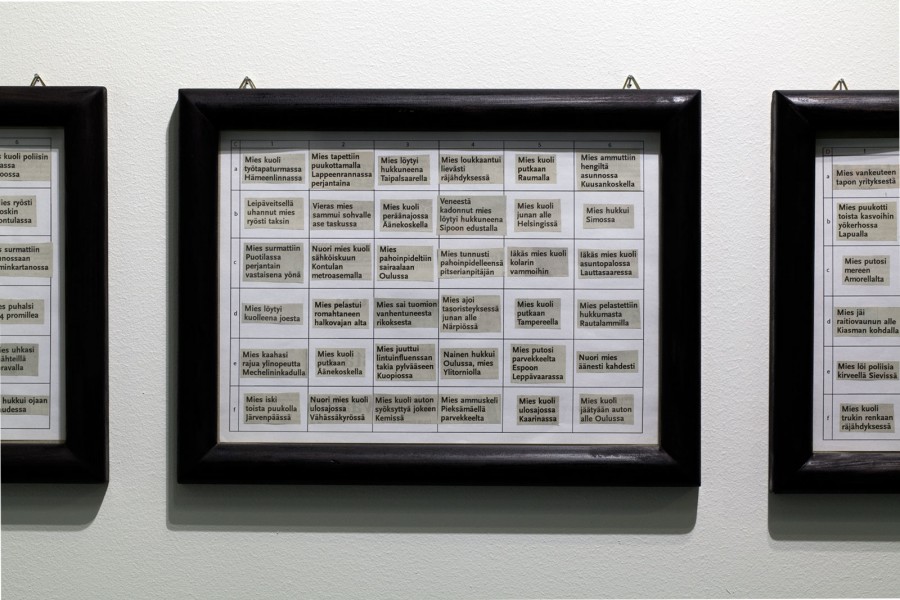 kuoli poliisin
ryösti
surmattiin
puhalsi
promillea
uhkasi
hukkui ojaan
1 2 3 4 5 6
a
Mies kuoli
työtapaturmassa
Hämeenlinnassa
Mies tapettiin
puukottamalla
Lappeenrannassa
perjantaina
Mies löytyi
hukkuneena
Taipalsaarella
Mies loukkaantui
lievästi
räjähdyksessä
Mies kuoli
putkaan
Raumalla
Mies ammuttiin
hengiltä
asunnossa
Kuusankoskella
b
Leipäveitsellä
uhannut mies
ryösti taksin
Vieras mies
sammui sohvalle
ase taskussa
Mies kuoli
peräänajossa
Äänekoskella
Veneestä
kadonnut mies
löytyi hukkuneena
Sipoon edustalla
Mies kuoli
junan alle
Helsingissä
Mies hukkui
Simossa
c
Mies surmattiin
Puotilassa
perjantain
vastaisena yönä
Nuori mies kuoli
sähköiskuun
Kontulan
metroasemalla
Mies
pahoinpideltiin
sairaalaan
Oulussa
Mies tunnusti
pahoinpidelleensä
pitserianpitäjän
Iäkäs mies kuoli
kolarin
vammoihin
Iäkäs mies kuoli
asuntopalossa
Lauttasaaressa
d
Mies löytyi
kuolleena joesta
Mies pelastui
romahtaneen
halkovajan alta
Mies sai tuomion
vanhentuneesta
rikoksesta
Mies ajoi
tasoristeyksessä
junan alle
Närpiössä
Mies kuoli
putkaan
Tampereella
Mies pelastettiin
hukkumasta
Rautalammilla
e
Mies kaahasi
rajua ylinopeutta
Mechelininkadulla
Mies kuoli
putkaan
Äänekoskella
Mies juuttui
lintuinfluenssan
takia pylvääseen
Kuopiossa
Nainen hukkui
Oulussa, mies
Ylitorniolla
Mies putosi
parvekkeelta
Espoon
Leppävaarassa
Nuori mies
äänesti kahdesti
f
Mies iski
toista puukolla
Järvenpäässä
Nuori mies kuoli
ulosajossa
Vähässäkyrössä
Mies kuoli auton
syöksyttyä jokeen
Kemissä
Mies ammuskeli
Pieksämäellä
parvekkeelta
Mies kuoli
ulosajossa
Kaarinassa
Mies kuoli
jäätyään auton
alle Oulussa
a
Mies vankeuteen
tapon yrityksestä
b
Mies puukotti
toista kasvoihin
yökerhossa
Lapualla
c
Mies putosi
mereen
Amorellalta
d
Mies jäi
raitiovaunun alle
Kiasman kohdalla
e
Mies löi poliisia
kirveellä Sievissä
f
Mies kuoli
trukin renkaan
räjähdyksessä